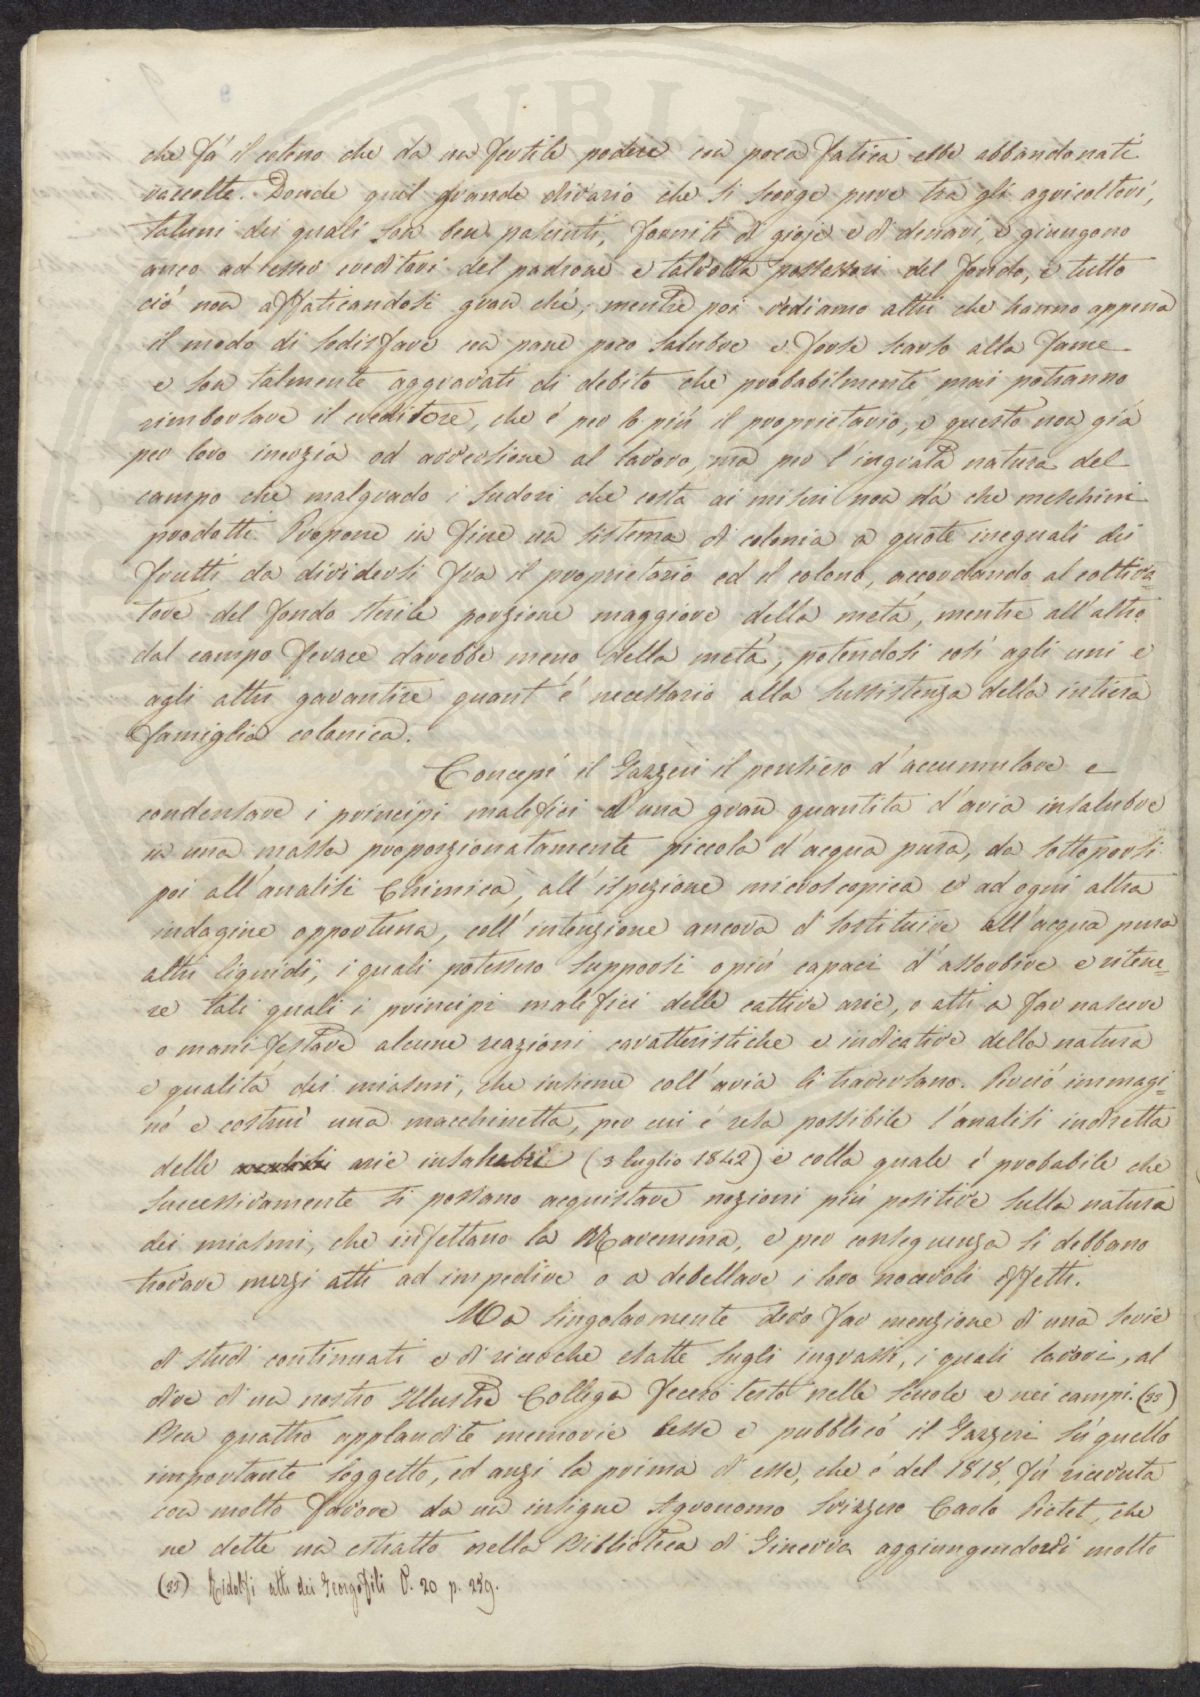 che fà il colono che da un fertile podere con poca fatica ebbe abbondanti
raccolte. Donde quel grande divario che si scorge pure tra gli agricoltori,
taluni dei quali son ben pasciuti, forniti di gioje e di denari, e giungono
anco ad esser creditori del padrone e talvolta possessori del fondo, e tutto
ciò non affaticandosi gran chè, mentre poi vediamo altri che hanno appena
il modo di sodisfare con pane poco salubre e forse scarso alla fame
e son talmente aggravati di debito che probabilmente mai potranno
rimborsare il creditore, che è per lo più il proprietario, e questo non già
per loro inerzia od avversione al lavoro, ma per l'ingrata natura del
campo che malgrado i sudori che costa ai miseri non dà che meschini
prodotti. Propone in fine un sistema di colonia a quote ineguali dei
frutti da dividersi fra il proprietario ed il colono, accordando al coltiva=
tore del fondo sterile porzione maggiore della metà, mentre all'altro
dal campo ferace darebbe meno della metà; potendosi così agli uni e
agli altri garantire quant'è necessario alla sussistenza della intiera
famiglia colonica.
Concepì il Gazzeri il pensiero d'accumulare e
condensare i principj malefici d'una gran quantità d'aria insalubre
in una massa proporzionatamente piccola d'acqua pura, da sottoporsi
poi all'analisi Chimica, all'ispezione microscopica e ad ogni altra
indagine opportuna, coll'intenzione ancora di sostituire all'acqua pura
altri liquidi, i quali potessero supporsi o più capaci d'assorbire e ritene=
re tali quali i principj malefici delle cattive arie, o atti a far nascere
o manifestare alcune reazioni caratteristiche e indicative della natura
e qualità dei miasmi, che insieme coll'aria li traversano. Perciò immagi=
nò e costruì una macchinetta, per cui è resa possibile l'analisi indiretta
delle arie insalubri (3 luglio 1842) e colla quale è probabile che
successivamente si possano acquistare nozioni più positive sulla natura
dei miasmi, che infettano la Maremma, e per conseguenza si debbano
trovare mezzi atti ad impedire o a debellare i loro nocevoli effetti.
Ma singolarmente devo far menzione di una serie
di studi continuati e di ricerche esatte sugli ingrassi, i quali lavori, al
dire di un nostro Illustre Collega fecero testo nelle scuole e nei campi. (33)
Ben quattro applaudite memorie lesse e pubblicò il Gazzeri su quello
importante soggetto, ed anzi la prima di esse, che è del 1818, fù ricevuta
con molto favore da un insigne Agronomo Svizzero Carlo Pictet, che
ne dette un estratto nella Biblioteca di Ginevra aggiungendovi molte
(33) Ridolfi atti dei Georgofili V. 20 p. 289.